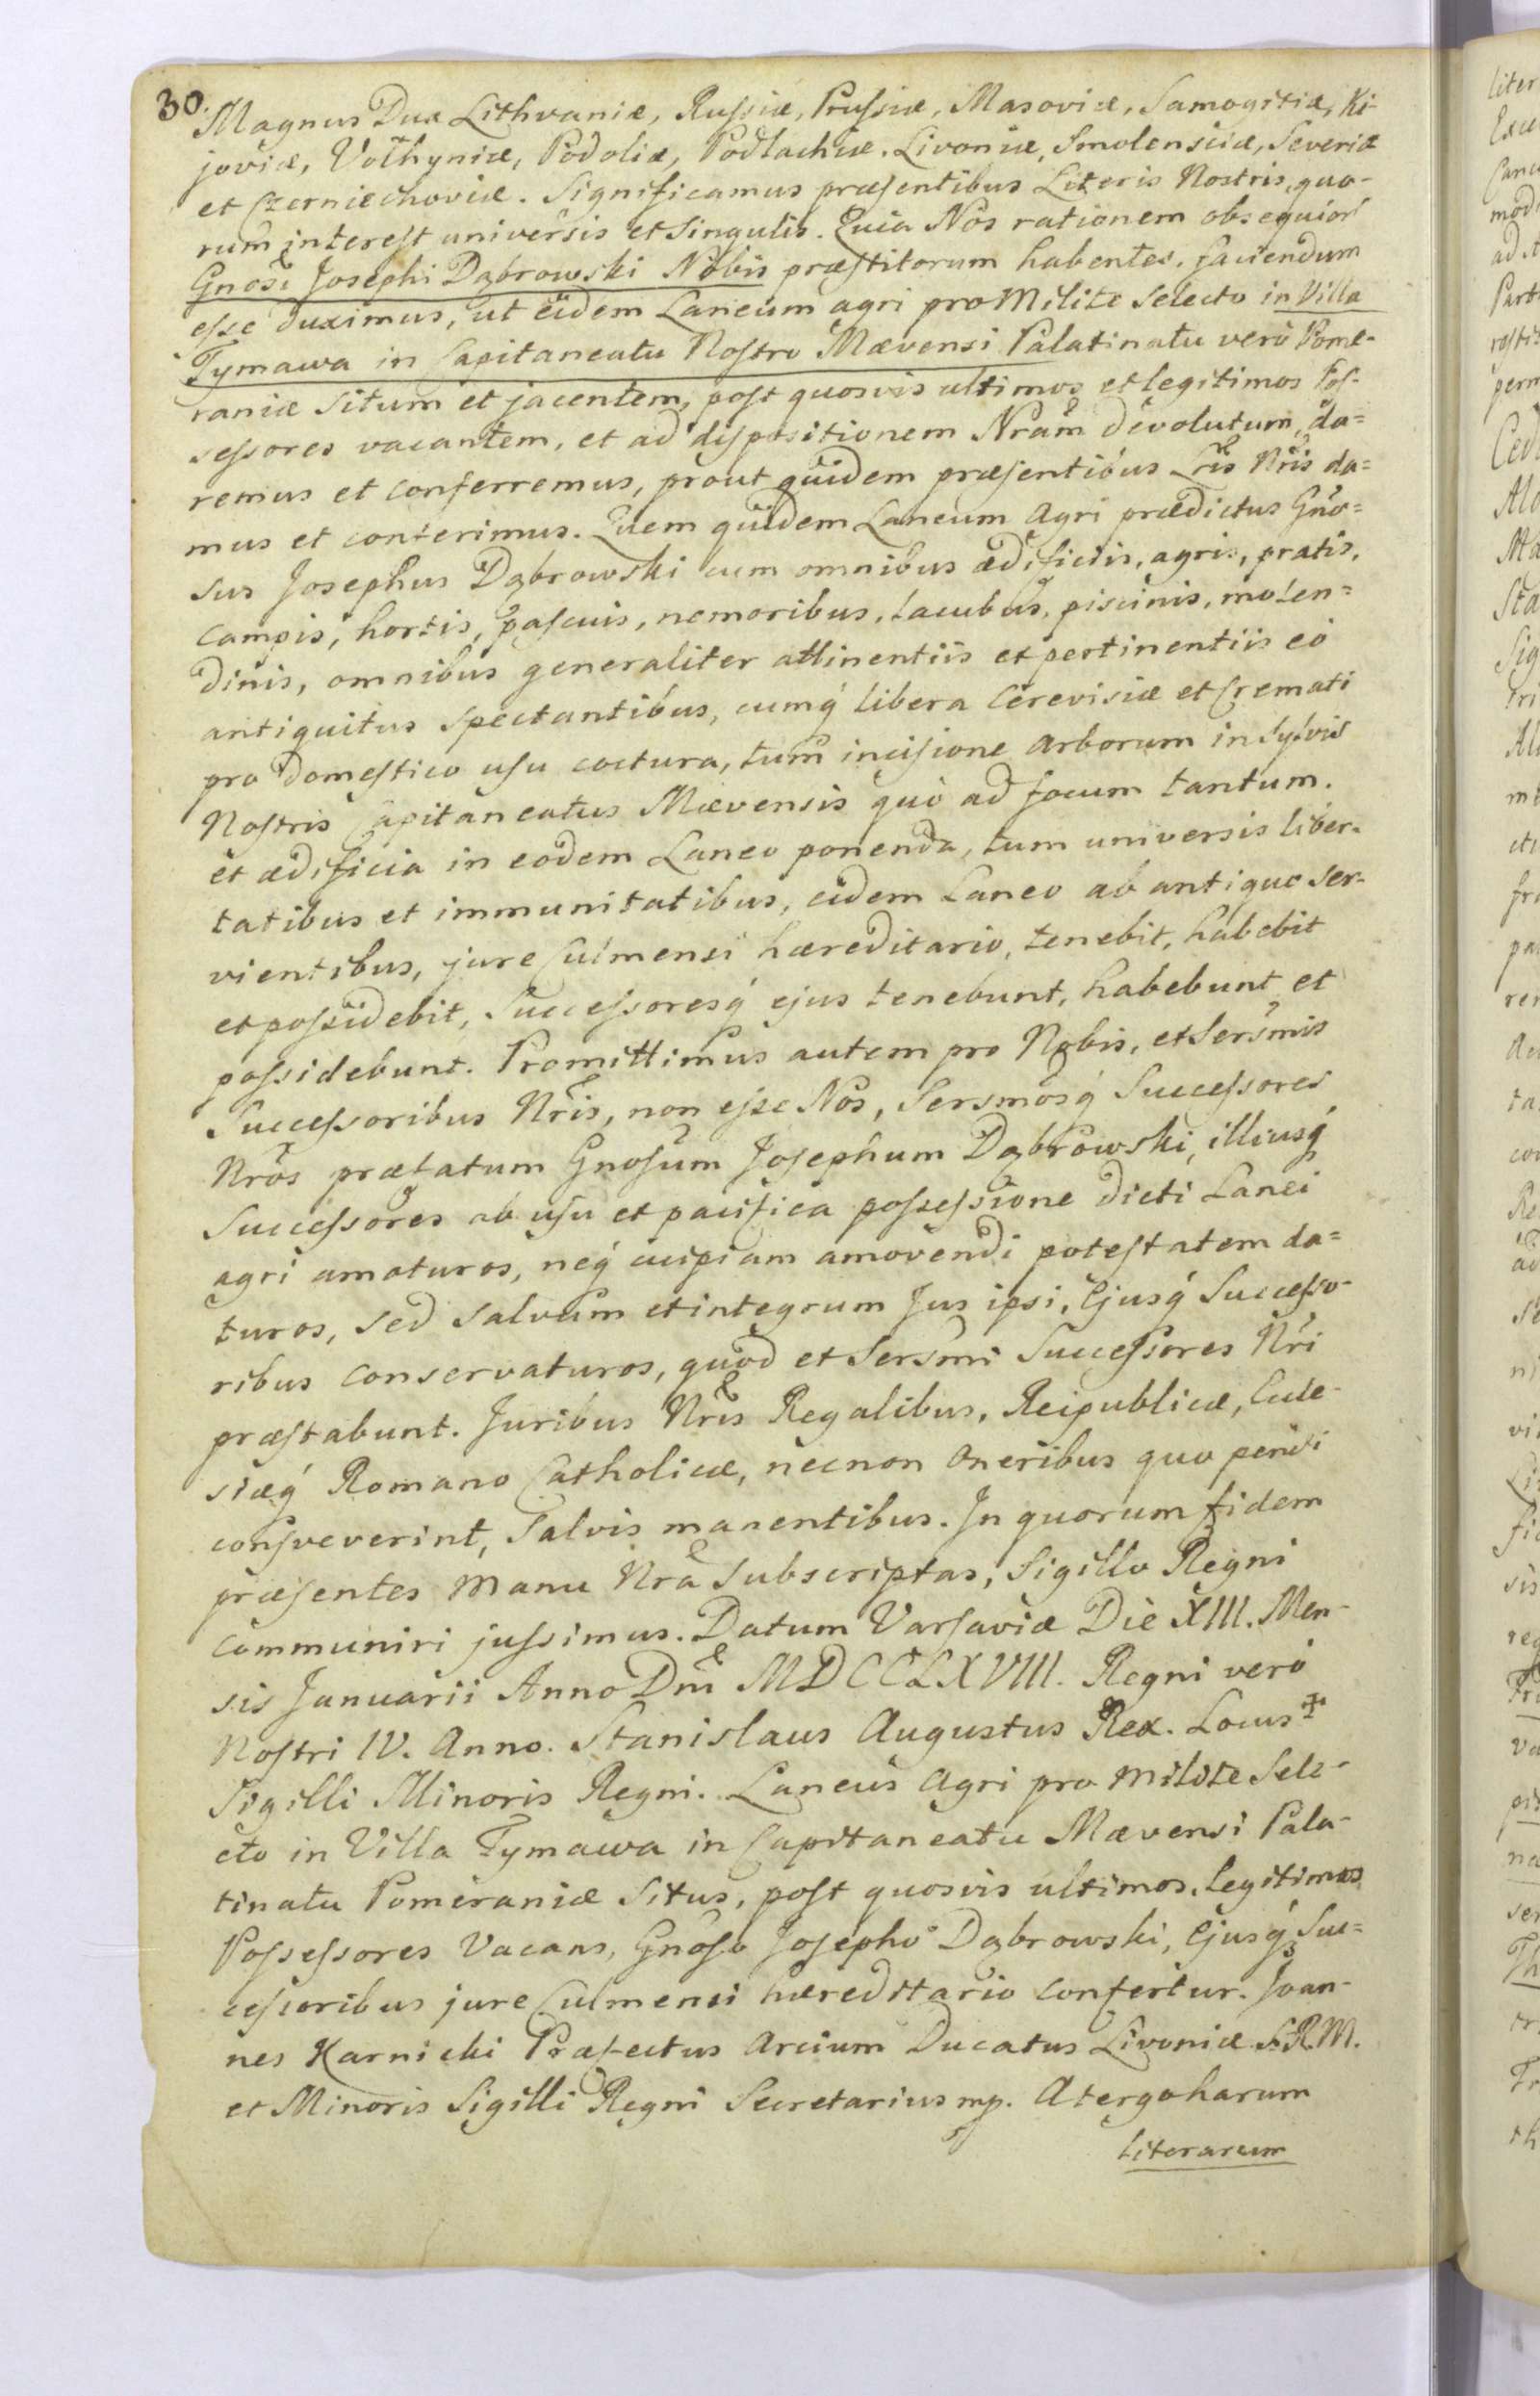 30. Magnus Dux Lithvaniæ, Russiæ, Prussiæ, Masoviæ, Samogitiæ, Ki-
joviæ, Volhyniæ, Podoliæ, Podlachiæ. Livoniæ, Smolensciæ, Severiæ
et Czerniechoviæ. Significamus præsentibus Literis Nostris, quo-
rum interest universis et Singulis. Quia Nos rationem obsequior
Gnosi Josephi Dąbrowski Nobis præstitorum habentes, faciendum
esse duximus, ut eidem Laneum agri pro Milite Selecto in Villa
Tymawa in Capitaneatu Nostro Mævensi Palatinatu verò Pome-
raniæ Situm et jacentem, post quosvis ultimos et legitimos Pos-
sessores vacantem, et ad dispositionem Nram devolutum, da=
remus et conferremus, prout quidem præsentibus Lris Nris da=
mus et conferimus. Quem quidem Laneum Agri prædictus Gno=
sus Josephus Dąbrowski cum omnibus ædificiis, agris, pratis,
campis, hortis, pascuis, nemoribus, lacubus, piscinis, molen=
dinis, omnibus generaliter attinentiis et pertinentiis eò
antiquitus spectantibus, cumq́ libera Cerevisiæ et Cremati
pro domestico usu coctura, tum incisione arborum in Sylvis
Nostris Capitaneatus Mævensis quò ad focum tantum.
et ædificia in eodem Laneo ponenda, tum universis liber-
tatibus et immunitatibus, eidem Laneo ab antiquo ser-
vientibus, jure Culmensi hæreditario, tenebit, habebit
et possidebit, Successoresq́ ejus tenebunt, habebunt et
possidebunt. Promittimus autem pro Nobis, et Sersmis
Successoribus Nris, non esse Nos, Sersmosq́ Successores
Nros præfatum Gnosum Josephum Dąbrowski, illiusq́
Successores ab usu et pacifica possessione dicti Lanei
agri amoturos, neq́ cuipiam amovendi potestatem da=
turos, sed salvum et integrum Jus ipsi, Ejusq́ Successo-
ribus conservaturos, quod et Sersmi Successores Nri
præstabunt. Juribus Nris Regalibus, Reipublicæ, Eccle-
siæq́ Romano Catholicæ, necnon Oneribus quo pendi
consveverint, Salvis manentibus. In quorum fidem
præsentes Manu Nra Subscriptas, Sigillo Regni
communiri jussimus. Datum Varsaviæ Die XIII. Men-
sis Januarii Anno Dni MDCCLXVIII. Regni verò
Nostri IV. Anno. Stanislaus Augustus Rex. Locus ☩
Sigilli Minoris Regni. Laneus Agri pro Milite Sele-
cto in Villa Tymawa in Capitaneatu Mævensi Pala-
tinatu Pomeraniæ Situs, post quosvis ultimos, Legitimos
Possessores Vacans, Gnoso Josepho Dąbrowski, Ejusq́ Suc=
cessoribus jure Culmensi hæreditario confertur. Joan-
nes Karnicki Præfectus Arcium Ducatus Livoniæ S.R.M.
et Minoris Sigilli Regni Secretarius mp. A tergo harum
literarum